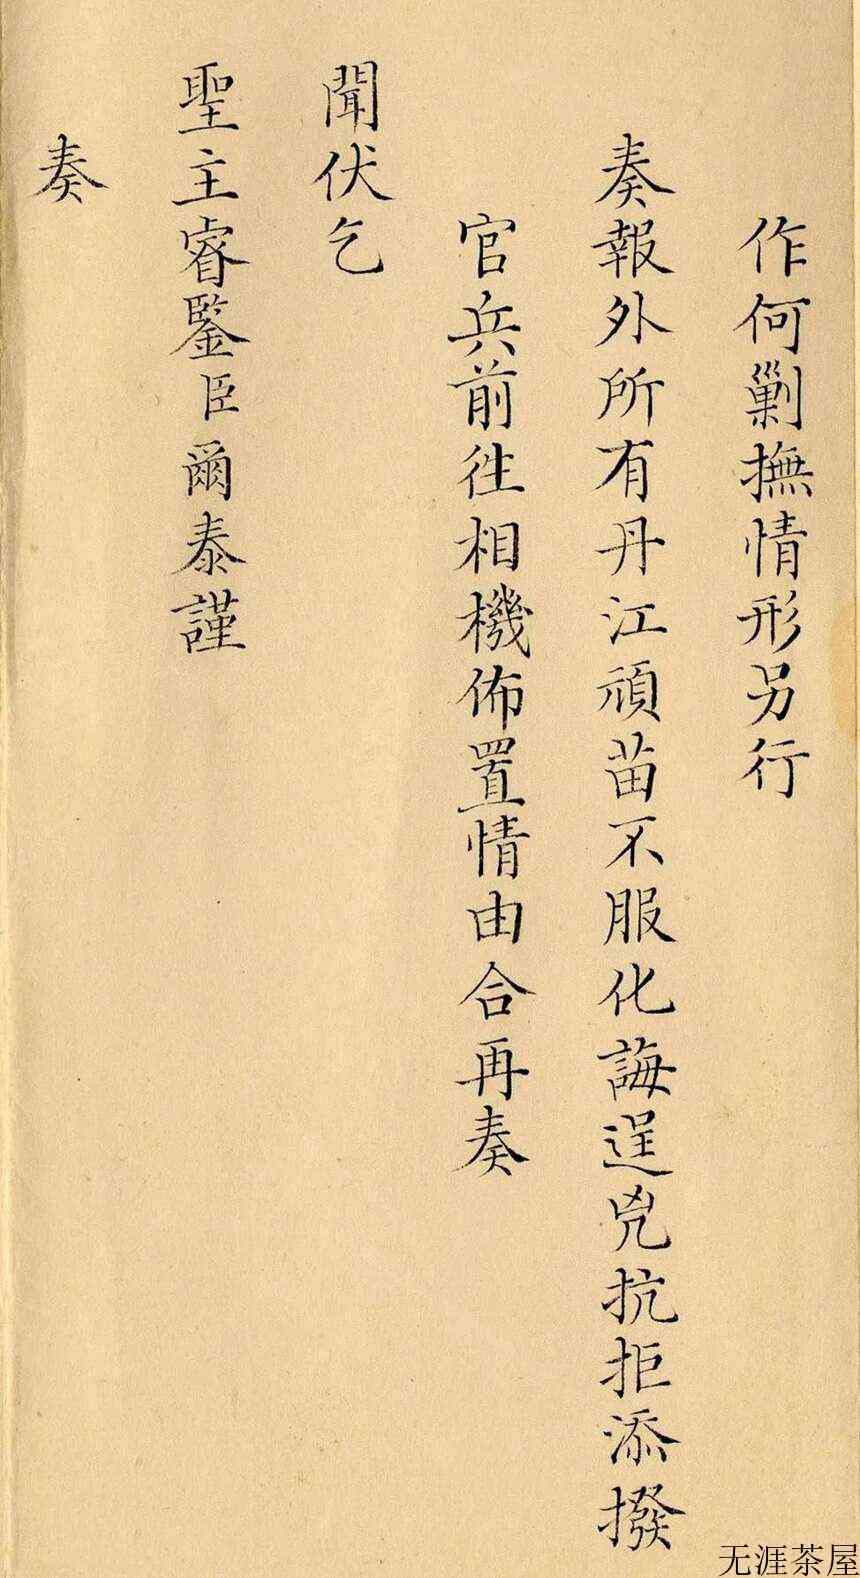 作何剿撫情形另行
奏報外所有丹江頑苗不服化誨逞兇抗拒添撥
官兵前往相機佈置情由合再奏
聞伏乞
聖主睿鑒臣爾泰謹
奏
无涯茶屋